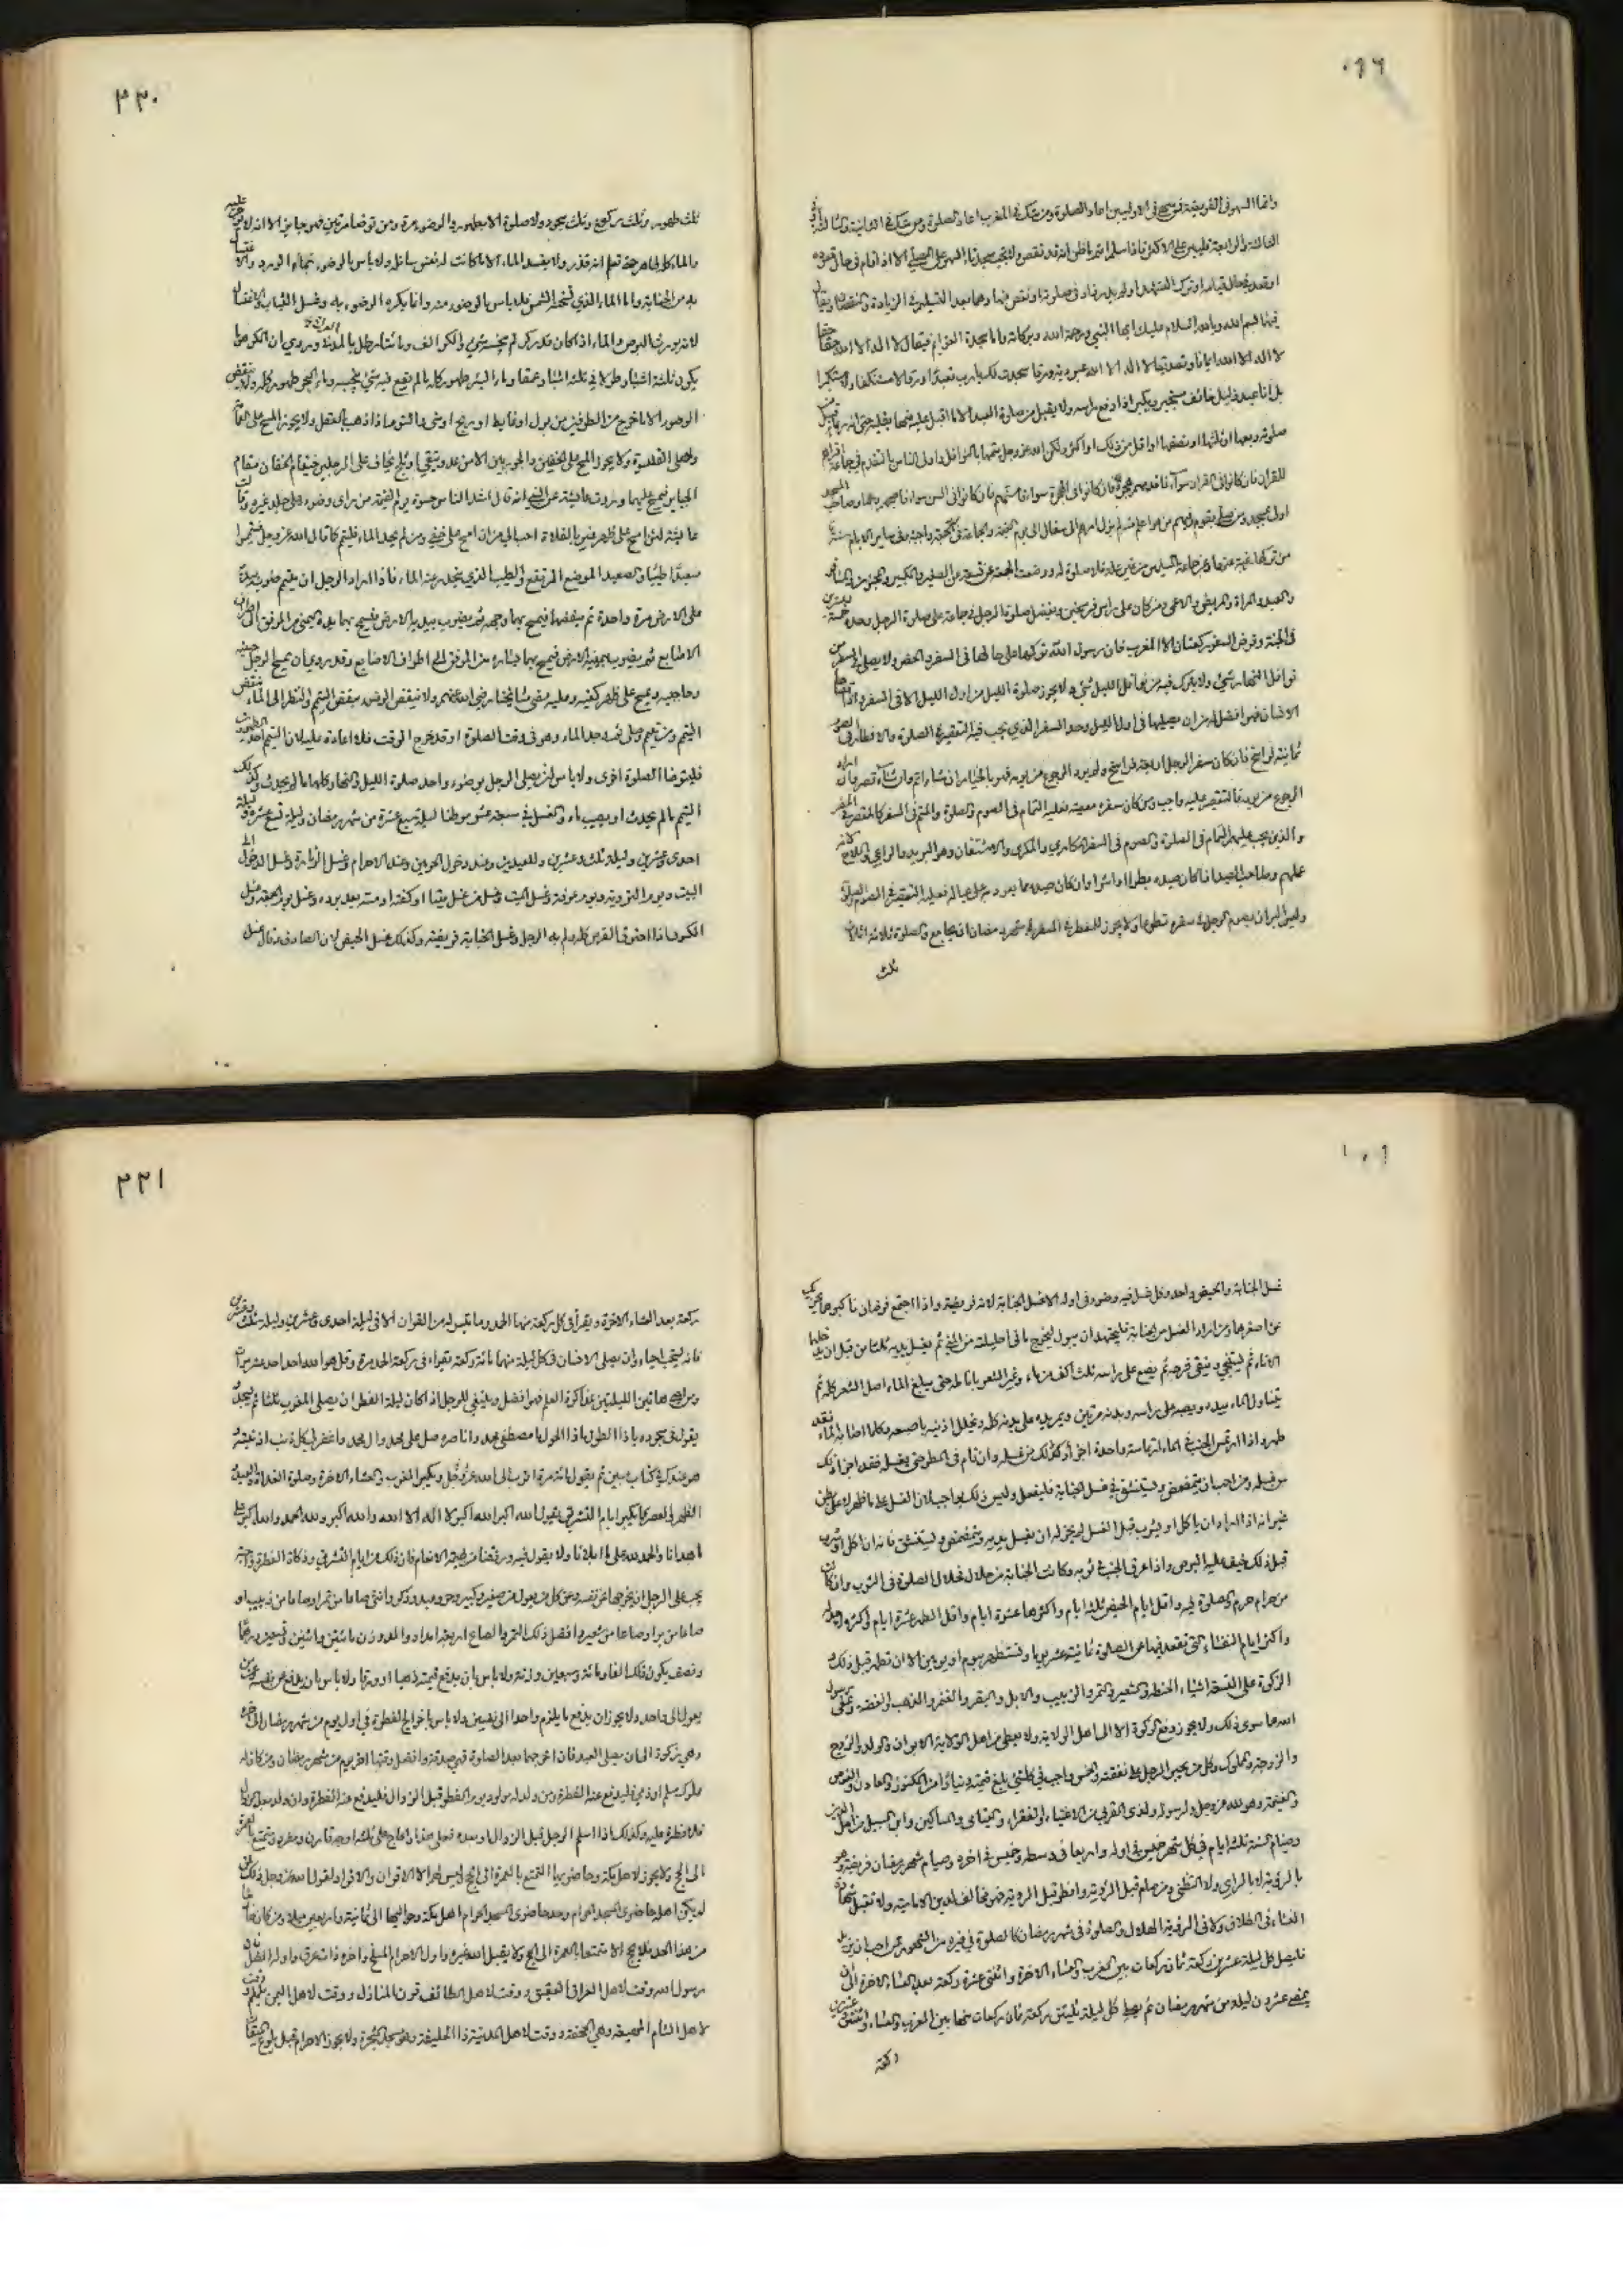 واما السهو في الفريضة فمن سهى في الاوليين اعاد الصلوة ومن شك في المغرب اعاد الصلوة ومن شك في الثانية والثالثة او في
الثالثة والرابعة فليبن على الاكثر فاذا سلم اتم ما ظن انه قد نقص ولا تجب سجدتا السهو على المصلي الا اذا قام في حال قعوده
او قعد في حال قيامه او ترك التشهد او لم يدر زاد في صلوته او نقص منها وهما بعد التسليم في الزيادة والنقصان ويقال
فيهما بسم الله وبالله السلام عليك ايها النبي ورحمة الله وبركاته واما سجدة العزايم فيقال لا اله الا الله حقا حقا
لا اله الا الله ايمانا وتصديقا لا اله الا الله عبودية ورقا سجدت لك يارب تعبدا ورقا لا مستنكفا ولا مستكبرا
بل انا عبد ذليل خائف مستجير ويكبر اذا رفع راسه ولا يقبل من صلوة العبد الا ما اقبل عليه منها بقلبه حتى انه ربما قبل من
صلوته ربعها او ثلثها او نصفها او اقل من ذلك او اكثر ولكن الله عز وجل يتمها بالنوافل واولى الناس بالتقدم في جماعة اقراهم
للقران فان كانوا في القران سواء فاقدمهم هجرة فان كانوا في الهجرة سواء فاسنهم فان كانوا في السن سواء فاصبحهم وجها وصاحب المسجد
اولى بمسجده ومن صلى بقوم وفيهم من هو اعلم منه لم يزل امرهم الى سفال الى يوم القيمة والجماعة في يوم الجمعة واجبة وفي ساير الايام سنة
من تركها رغبة عنها وعن جماعة المسلمين من غير علة فلا صلوة له ووضعت الجمعة عن تسعة عن الصغير والكبير والمجنون والمسافر
والعبد والمراة والمريض والاعمى ومن كان على راس فرسخين وتفضل صلوة الرجل في جماعة على صلوة الرجل وحده خمسة وعشرين
في الجنة وفرض السفر ركعتان الا المغرب فان رسول الله تركها على حالها في السفر والحضر ولا يصلي في السفر من
نوافل النهار شيء ولا يترك فيه من نوافل الليل شيء ولا يجوز صلوة الليل من اول الليل الا في السفر واذا قضاها
الانسان فهو افضل له من ان يصليها في اول الليل وحد السفر الذي يجب فيه التقصير في الصلوة والافطار في الصوم
ثمانية فراسخ فان كان سفر الرجل اربعة فراسخ ولم يرد الرجوع من يومه فهو بالخيار ان شاء اتم وان شاء قصر وان اراد
الرجوع من يومه فالتقصير عليه واجب ومن كان سفره معصية فعليه التمام في الصوم والصلوة والمتم في السفر كالمقصر في الحضر
والذين يجب عليهم التمام في الصلوة والصوم في السفر المكاري والكري والاشتقان وهو البريد والراعي والملاح لانه
عملهم وصاحب الصيد اذا كان صيده بطرا او اشرا وان كان صيده مما يعود به على عياله فعليه التقصير في الصوم والصلوة
وليس من البر ان يصوم الرجل في سفره تطوعا ولا يجوز للمفطر في السفر في شهر رمضان ان يجامع والصلوة ثلاثة اثلاث
ثلث
٣٣٠
ثلث طهور وثلث ركوع وثلث سجود ولا صلوة الا بطهور والوضوء مرة ومن توضا مرتين فهو جايز الا انه لا يوجر عليه
والماء كله طاهر حتى تعلم انه قذر ولا يفسد الماء الا ما كانت له نفس سائلة ولا باس بالوضوء بماء الورد والاغتسال
به من الجنابة واما الماء الذي تسخنه الشمس فلا باس بالوضوء منه وانما يكره الوضوء به وغسل الثياب والاغتسال
لانه يورث البرص والماء اذا كان قدر كر لم ينجسه شيء والكر الف ومائتا رطل بالمدني وروي ان الكر هو ما
يكون ثلثة اشبار طولا في ثلثة اشبار عمقا وماء البئر طهور كله ما لم يقع فيه شيء ينجسه وماء البحر طهور كله ولا ينقض
الوضوء الا ما خرج من الطرفين من بول او غايط او ريح او مني والنوم اذا ذهب بالعقل ولا يجوز المسح على العمامة
ولا على القلنسوة ولا يجوز المسح على الخفين والجوربين الا من عدو يتقى او ثلج يخاف على الرجلين فيقام الخفان مقام
الجباير فيمسح عليهما وروت عائشة عن النبي انه قال اشد الناس حسرة يوم القيمة من راى وضوءه على جلد غيره وقالت
عائشة لئن امسح على ظهر عير بالفلاة احب الي من ان امسح على خفي ومن لم يجد الماء فليتيمم كما قال الله عز وجل فتيمموا
صعيدا طيبا والصعيد الموضع المرتفع والطيب الذي ينحدر عنه الماء فاذا اراد الرجل ان يتيمم ضرب بيديه
على الارض مرة واحدة ثم ينفضهما فيمسح بهما وجهه ثم يضرب بيده اليسرى الارض فيمسح بها يده اليمنى من المرفق الى اطراف
الاصابع ثم يضرب بيمينه الارض فيمسح بها يساره من المرفق الى اطراف الاصابع وقد روي ان يمسح الرجل جبينه
وحاجبيه ويمسح على ظهر كفيه وعليه مضى مشايخنا رضي الله عنهم وما ينقض الوضوء ينقض التيمم والنظر الى الماء ينقض
التيمم ومن تيمم وصلى ثم وجد الماء وهو في وقت الصلوة او قد خرج الوقت فلا اعادة عليه لان التيمم احد الطهورين
فليتوضا لصلوة اخرى ولا باس ان يصلي الرجل بوضوء واحد صلوة الليل والنهار كلها ما لم يحدث وكذلك
التيمم ما لم يحدث او يصيب ماء والغسل في سبعة عشر موطنا ليلة سبع عشرة من شهر رمضان وليلة تسع عشرة وليلة
احدى وعشرين وليلة ثلث وعشرين وللعيدين وعند دخول الحرمين وعند الاحرام وغسل الزيارة وغسل الدخول الى
البيت ويوم التروية ويوم عرفة وغسل الميت وغسل من غسل ميتا او كفنه او مسه بعد برده وغسل يوم الجمعة وغسل
الكسوف اذا احترق القرص كله ولم يعلم به الرجل وغسل الجنابة فريضة وكذلك غسل الحيض لان الصادق قال غسل
غسل الجنابة والحيض واحد وكل غسل فيه وضوء في اوله الا غسل الجنابة لانه فريضة واذا اجتمع فرضان فاكبرهما يجزي
عن اصغرهما ومن اراد الغسل من الجنابة فليجتهد ان يبول ليخرج ما في احليله من المني ثم يغسل يديه ثلثا من قبل ان يدخلهما
الاناء ثم يستنجي وينقي فرجه ثم يضع على راسه ثلث اكف من ماء ويميز الشعر بانامله حتى يبلغ الماء اصل الشعر كله ثم
يتناول الماء بيده ويصبه على راسه وبدنه مرتين ويمر يده على بدنه كله ويخلل اذنيه باصبعه وكلما اصابه الماء فقد
طهر واذا ارتمس الجنب في الماء ارتماسة واحدة اجزاه ذلك من غسله وان قام في المطر حتى يغسله فقد اجزاه ذلك
من غسله ومن احب ان يتمضمض ويستنشق في غسل الجنابة فليفعل وليس ذلك بواجب لان الغسل على ما ظهر لا على ما بطن
غير انه اذا اراد ان ياكل او يشرب قبل الغسل لم يجز له الا ان يغسل يديه ويتمضمض ويستنشق فانه ان اكل او شرب
قبل ذلك خيف عليه البرص واذا عرق الجنب في ثوبه وكانت الجنابة من حلال فحلال الصلوة في الثوب وان كانت
من حرام حرم الصلوة فيه واقل ايام الحيض ثلثة ايام واكثرها عشرة ايام واقل الطهر عشرة ايام واكثره لا حد له
واكثر ايام النفساء التي تقعد فيها عن الصلوة ثمانية عشر يوما وتستظهر بيوم او يومين الا ان تطهر قبل ذلك
الزكوة على تسعة اشياء الحنطة والشعير والتمر والزبيب والابل والبقر والغنم والذهب والفضة وعفى رسول
الله عما سوى ذلك ولا يجوز دفع الزكوة الا الى اهل الولاية ولا يعطى من اهل الولاية الابوان والولد والزوج
والزوجة والمملوك وكل من يجبر الرجل على نفقته والخمس واجب في كل شيء بلغ قيمته دينارا من الكنوز والمعادن والغوص
والغنيمة وهو لله عز وجل ولرسوله ولذي القربى من الاغنياء والفقراء واليتامى والمساكين وابن السبيل من اهل الدين
وصيام السنة ثلثة ايام في كل شهر خميس في اوله واربعاء في وسطه وخميس في اخره وصيام شهر رمضان فريضة وهو
بالرؤية لا بالراي ولا التظني ومن صام قبل الرؤية وافطر قبل الرؤية فهو مخالف لدين الامامية ولا تقبل شهادة
النساء في الطلاق ولا في الرؤية الهلال والصلوة في شهر رمضان كالصلوة في غيره من الشهور فمن احب ان يزيد
فليصل كل ليلة عشرين ركعة ثمان ركعات بين المغرب والعشاء الاخرة واثنتي عشرة ركعة بعد العشاء الاخرة الى ان
يمضي عشرون ليلة من شهر رمضان ثم يصلي كل ليلة ثلثين ركعة ثمان ركعات منها بين المغرب والعشاء واثنتين وعشرين
ركعة
٣٣١
ركعة بعد العشاء الاخرة ويقرا في كل ركعة منها الحمد وما تيسر له من القران الا في ليلة احدى وعشرين وليلة ثلث وعشرين
فانه يستحب احياؤهما وان يصلي الانسان في كل ليلة منهما مائة ركعة يقراء في كل ركعة الحمد مرة وقل هو الله احد احد عشر مرات
ومن احيى هاتين الليلتين بمذاكرة العلم فهو افضل وينبغي للرجل اذا كان ليلة الفطر ان يصلي المغرب ثلثا ثم يسجد
يقول في سجوده يا ذا الطول يا ذا الحول يا مصطفي محمد وناصره صل على محمد وال محمد واغفر لي كل ذنب اذنبته
هو عندك في كتاب مبين ثم يقول مائة مرة اتوب الى الله عز وجل ويكبر المغرب والعشاء الاخرة وصلوة الغداة والعيد
الظهر والعصر كما يكبر ايام التشريق يقول الله اكبر الله اكبر لا اله الا الله والله اكبر ولله الحمد والله اكبر على ما
هدانا والحمد لله على ما ابلانا ولا يقول فيه ورزقنا من بهيمة الانعام فان ذلك من ايام التشريق وزكاة الفطرة واجبة
يجب على الرجل ان يخرجها عن نفسه وعن كل من يعول من صغير وكبير وحر وعبد وذكر وانثى صاعا من تمر او صاعا من زبيب او
صاعا من بر او صاعا من شعير وافضل ذلك التمر والصاع اربعة امداد والمد وزن مائتين واثنين وتسعين درهما
ونصف يكون ذلك الفا ومائة وسبعين وزنة ولا باس بان يدفع قيمته ذهبا او ورقا ولا باس بان يدفع عن نفسه وعن من
يعول الى واحد ولا يجوز ان يدفع ما يلزم واحدا الى نفسين ولا باس باخراج الفطرة في اول يوم من شهر رمضان الى اخره
وهي زكوة الى ان يصلي العيد فان اخرجها بعد الصلوة فهي صدقة وافضل وقتها اخر يوم من شهر رمضان ومن كان له
مملوك مسلم او ذمي فليدفع عنه الفطرة ومن ولد له مولود يوم الفطر قبل الزوال فليدفع عنه الفطرة وان ولد بعد الزوال
فلا فطرة عليه وكذلك اذا اسلم الرجل قبل الزوال او بعده فعلى هذا والحاج على ثلثة اوجه قارن ومفرد ومتمتع بالعمرة
الى الحج ولا يجوز لاهل مكة وحاضريها التمتع بالعمرة الى الحج ليس لهم الا الاقران والافراد لقول الله عز وجل ذلك لمن
لم يكن اهله حاضري المسجد الحرام وحد حاضري المسجد الحرام اهل مكة وحواليها الى ثمانية واربعين ميلا ومن كان خارجا
من هذا الحد فلا يحج الا متمتعا بالعمرة الى الحج ولا يقبل الله غيره واول الاحرام المسلخ واخره ذات عرق واوله افضل فان
رسول الله وقت لاهل العراق العقيق ووقت لاهل الطائف قرن المنازل ووقت لاهل اليمن يلملم ووقت
لاهل الشام المهيعة وهي الجحفة ووقت لاهل المدينة ذا الحليفة وهو مسجد الشجرة ولا يجوز الاحرام قبل بلوغ الميقات